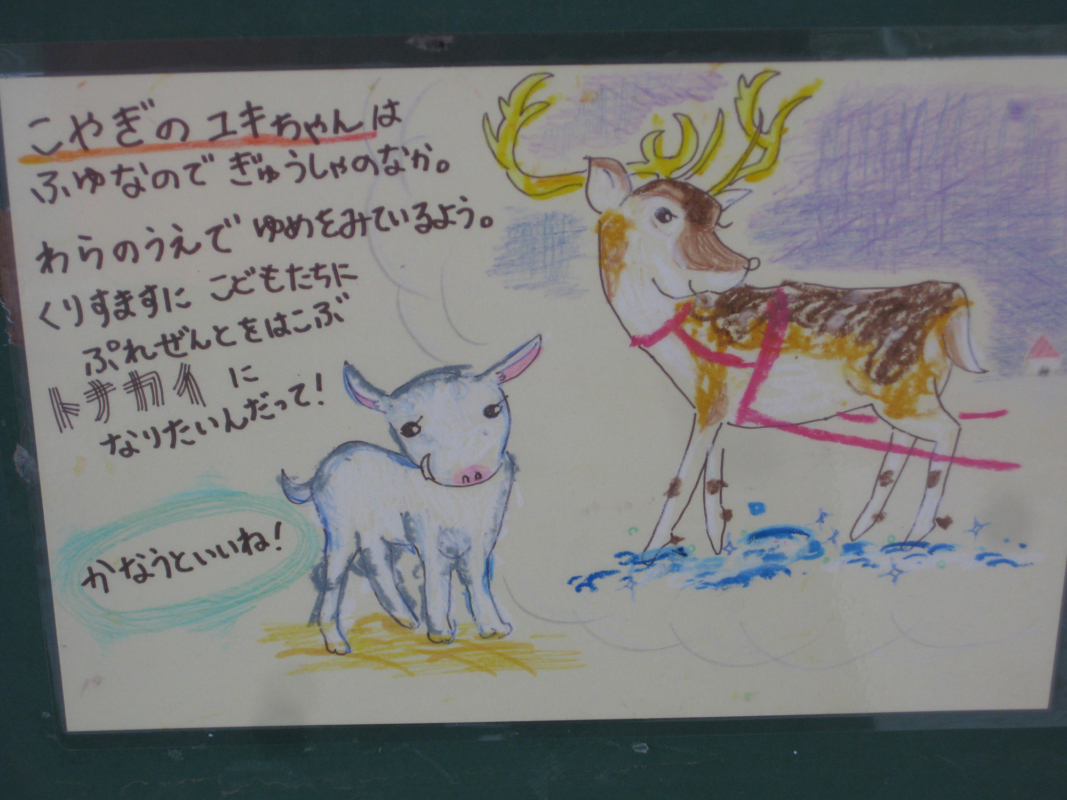 こやぎの ユキちゃんは
ふゆなので ぎゅうしゃのなか。
わらのうえで ゆめをみているよう。
くりすますに こどもたちに
ぷれぜんとをはこぶ
トナカイ に
なりたいんだって!
かなうといいね!